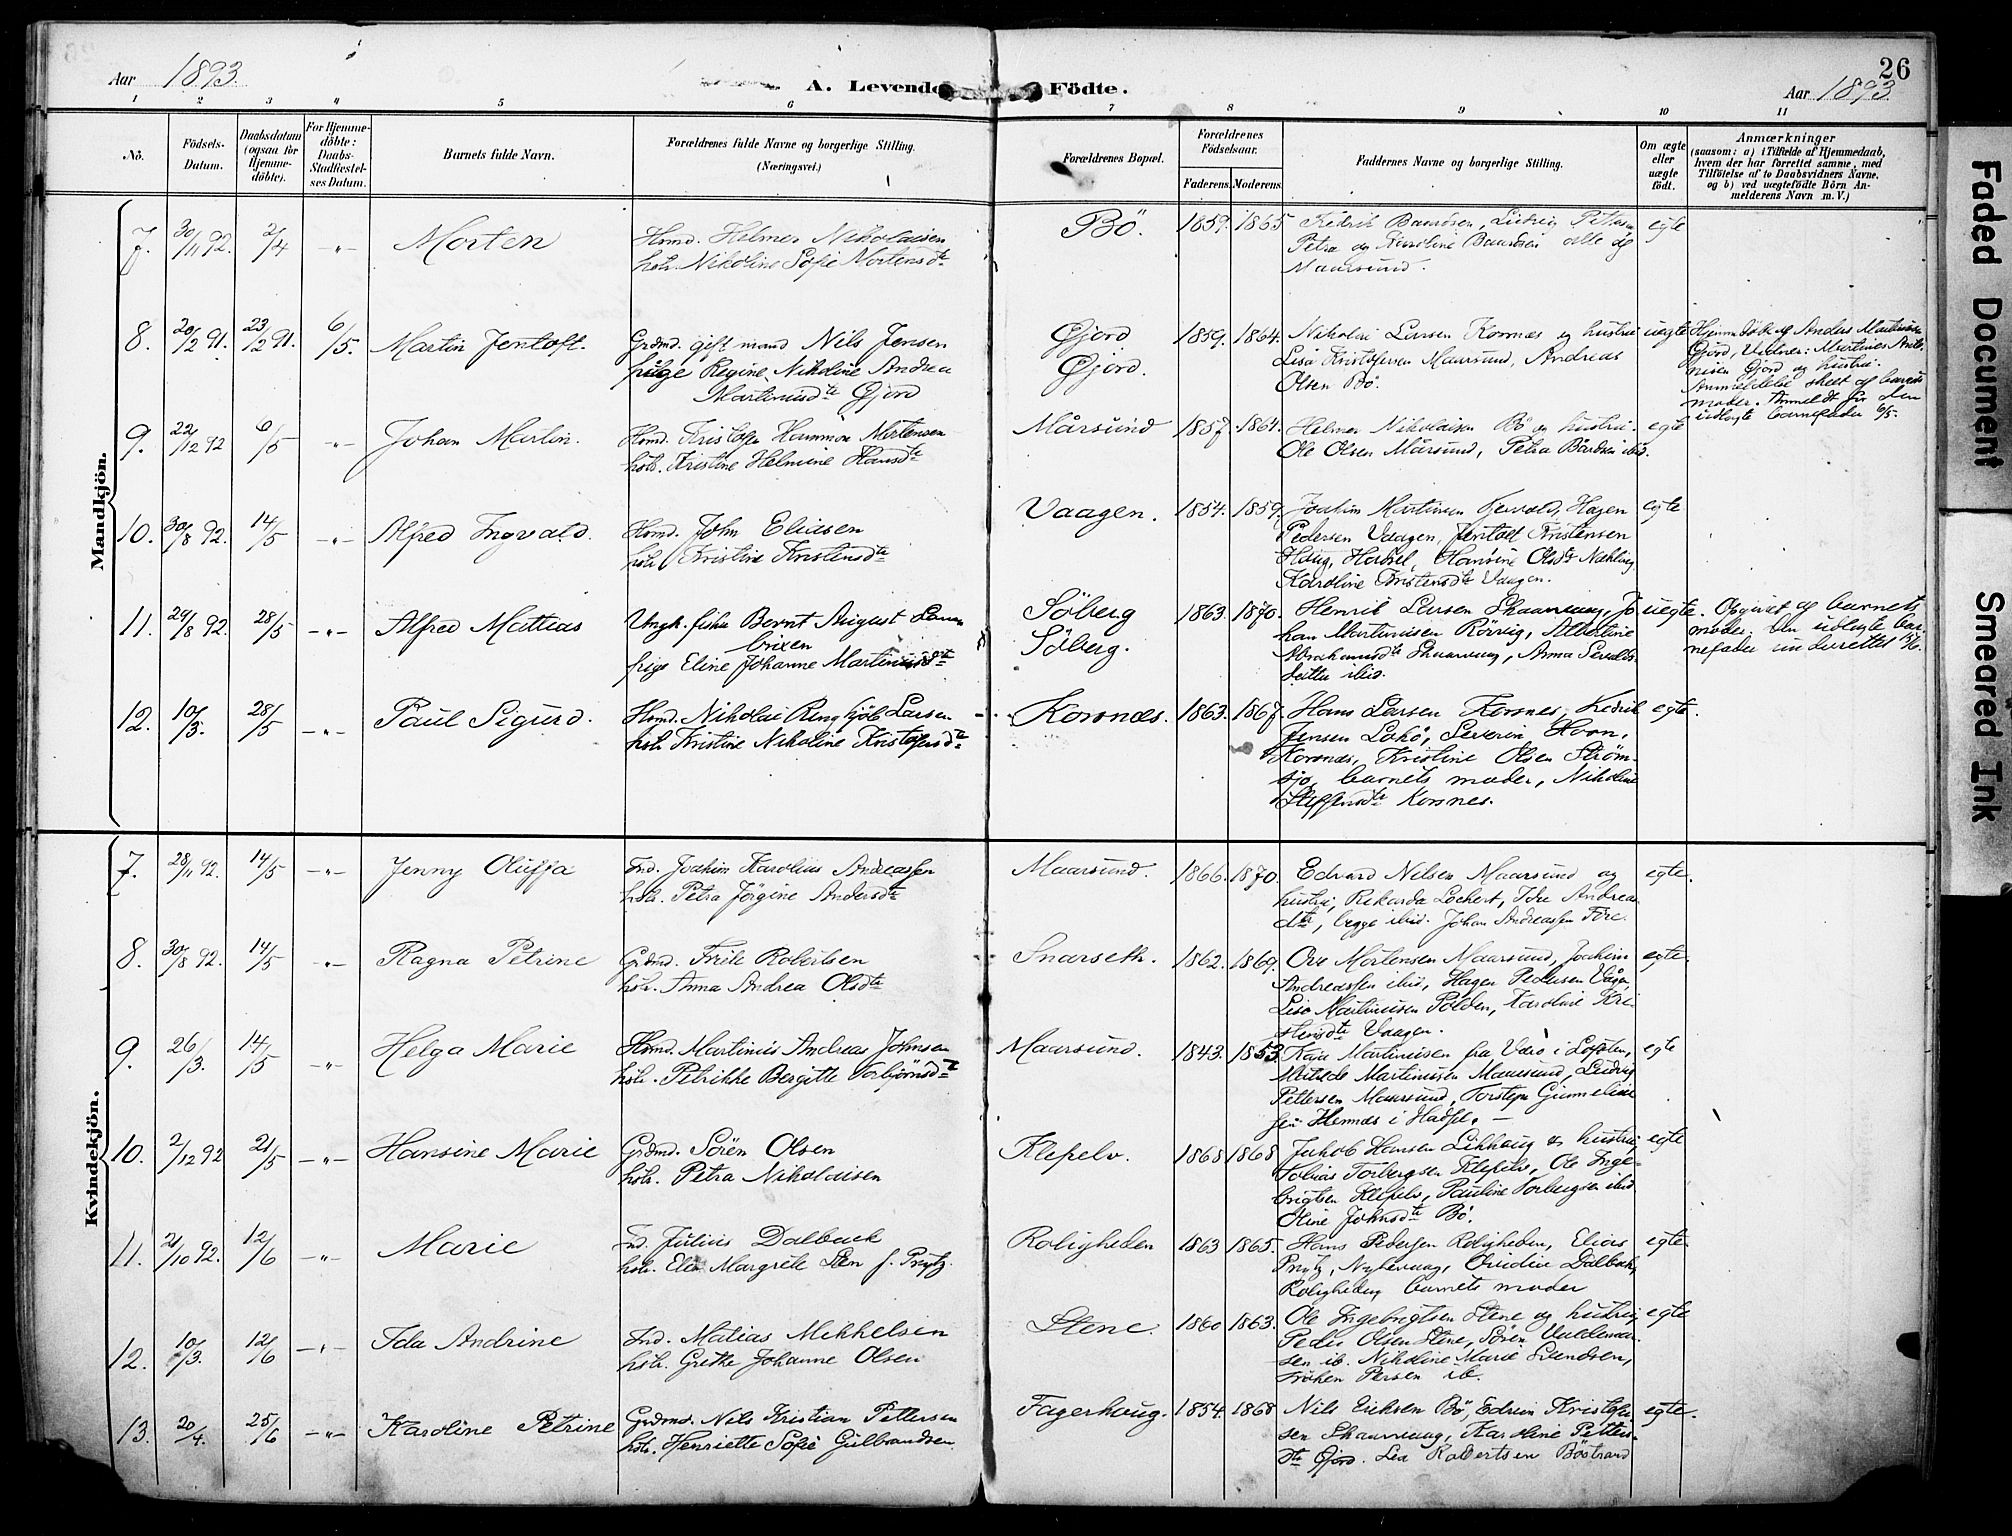 26
Aar 1893.
A. Levende Födte.
Aar 1893
1 2 3 4 5 6 7 8 9 10 11
No.
Födsels-Datum.
Daabsdatum (ogsaa for Hjemme-döbte).
For Hjemme-döbte: Daabs-Stadfæstel-ses Datum.
Barnets fulde Navn.
Forældrenes fulde Navne og borgerlige Stilling.
(Næringsvei.)
Forældrenes Bopæl.
Forældrenes Födselsaar.
Faderens. Moderens.
Faddernes Navne og borgerlige Stilling.
Om ægte eller uægte födt.
Anmærkninger
(saasom: a) i Tilfælde af Hjemmedaab,
hvem der har forrettet samme, med
Tilföielse af to Daabsvidners Navne,
og b) ved uægtefödte Börn An-
melderens Navn m. V.)
Mandkjön.
7. 30/11 92. 2/4 -"- Morten
Hsmd. Helmer Nikolaisen
hstr. Nikoline Sofie Mortensdtr
Bö. 1859. 1865
Fredrik Baardsen, Ludvig Pettersen
Petra og Karoline Baardsen alle af
Maarsund.
egte
8. 20/2 91. 23/2 91. 6/5. Martin Jentoft.
Grdmd. gift mand Nils Jensen
pige Regine Nikoline Andrea
Martinusdtr Gjord
Gjord
Gjord.
1859. 1864.
Nikolai Larsen Korsnes og hustru
Lisa Kristofersen Maarsund, Andreas
Olsen Bö.
uegte
Hjemmedöbt af Anders Martinsen
Gjord, Vidner: Martines Anto-
nisen Gjord og hustru.
Anmeldelse skeet af barnets
moder. Anmeldt for den
udlagte barnefader 6/5.
9. 22/12 92 6/5 -"- Johan Martin.
Hsmd. Kristofer Hammon Mortensen
hstr. Kristine Helmine Hansdtr
Mårsund 1857. 1861.
Helmer Nikolaisen Bö og hustru.
Ole Olsen Mårsund, Petra Bårdsen ibid.
egte
10. 30/8 92. 14/5 -"- Alfred Ingvald.
Hsmd. John Eliasen
hstr Kristine Kristensdtr
Vaagen. 1854. 1859.
Joakim Martinsen, Hagen
Pedersen Vaagen, Jentoft Kristensen
Haug, Hadsel, Hansine Olsdtr
Karoline Kristensdtr Vaagen.
egte
11. 29/8 92. 28/5 -"- Alfred Mattias
Ungk. fisker Bernt August Laurits
pige Eline Johanne Martinusdtr
Söberg
Söberg.
1863. 1870.
Henrik Larsen Skaarvaag, Jo-
han Martinusen Rörvig, Albertine
Abrahamsdtr Skaarvaag, Anna
datter ibid.
uegte.
Opgivet af barnets
moder. Den udlagte bar-
nefader underrettet
12. 10/3. 28/5 -"- Paul Sigurd.
Hsmd. Nikolai Ringkjöb Larsen
hstr Kristine Nikoline Kristofersdtr
Korsnæs. 1863. 1867.
Hans Larsen Korsnes, Fredrik
Jensen, Severin Hoon,
Korsnæs, Kristine Olsen Ström-
sjo, barnets moder, Nikoline
Steffensdtr Korsnes.
egte.
Kvindekjön.
7. 28/11 92. 14/5 -"- Jenny Oluffa
Ind. Joakim Karolius Andreassen
hstr. Petra Jörgine Andersdtr
Maarsund. 1866. 1870.
Edvard Nilsen Maarsund og
hustru, Rikarda Lochert, Andreas
dtr, begge ibid. Johan Andreassen Före.
egte.
8. 30/8 92. 14/5 -"- Ragna Petrine
Grdmd. Frits Robertsen
hstr. Anna Andrea Olsdtr
Snarseth. 1862. 1869.
Ove Mortensen Maarsund, Joakim
Andreassen ibid, Hagen Pedersen Vågen
Lisa Martinusen Polden, Karoline Kri-
stensdtr Vaagen.
egte.
9. 26/3. 14/5 -"- Helga Marie
Hsmd. Martinus Andreas Johnsen
hstr. Petrikke Bergitte Torbjörnsdtr
Maarsund. 1843. 1853.
Kaja Martinusen fra Værö i Lofoten,
Matilde Martinusen Maarsund, Ludvig
Pettersen Maarsund, Torstein Gunnelius
sen Hennes i Hadsel.
egte
10. 2/12 92 21/5 -"- Hansine Marie
Grdmd. Sören Olsen
hstr. Petra Nikolaisen
Klepelv. 1868 1868
Jakob Hansen Likhaug & hustru
Tobias Torbergsen Klepels, Ole Inge-
brigtsen Klepels, Pauline Torbergsen ibid
Oline Johnsdtr Bö.
egte
11. 21/10 92. 12/6 -"- Marie
Ind. Julius Dalbak
hstr. Elen Margrete Sten f. Prytz.
Roligheden 1863 1865.
Hans Pedersen Roligheden, Elias
Prytz, Nykvaag, Ovidia Dalbak,
Roligheden, barnets moder
egte.
12. 10/3. 12/6 -"- Ida Andrine
Ind. Matias Mikkelsen
hstr. Grethe Johanne Olsen
Stene. 1860 1863.
Ole Ingebrigtsen Stene og hustru,
Peder Olsen Stene, Sören Valdemar-
sen ib. Nikoline Marie Svendsen,
fröken Persen ib.
egte
13. 20/4. 25/6 -"- Karoline Petrine
Grdmd. Nils Kristian Pettersen
hstr. Henriette Sofie Gulbrandsen
Fagerhaug. 1854. 1868
Nils Eriksen Bö, Edvin Kristofer-
sen Skaarvaag, Karoline Petters-
dtr Gjord. Lea Robertsen Böstrand
egte.
Faded Document
Smeared Ink